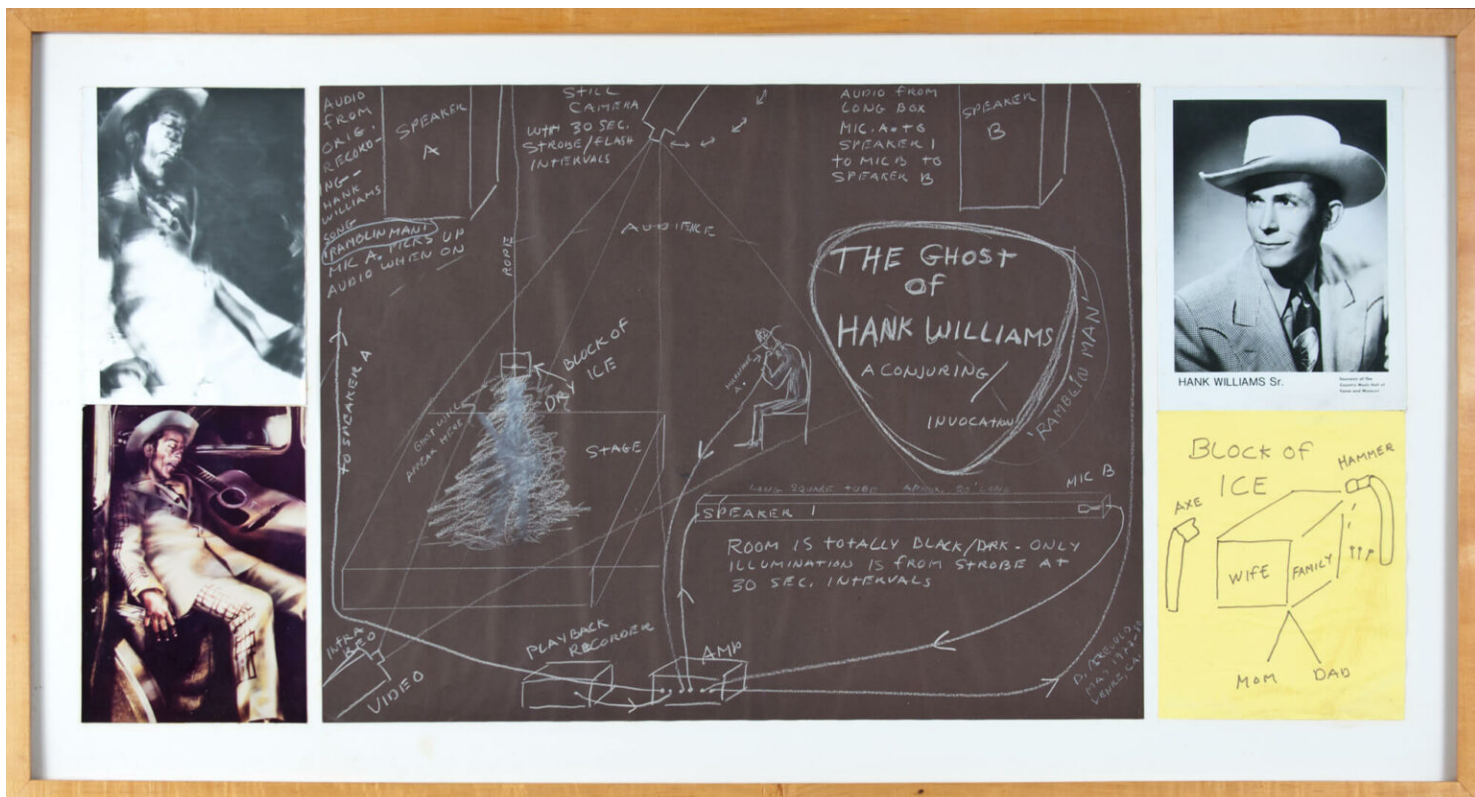 AUDIO
FROM
ORIG.
RECORD-
ING-
HANK
WILLIAMS
SONG
'RAMBLIN MAN'
MIC A. PICKS UP
AUDIO WHEN ON
SPEAKER
A
STILL
CAMERA
WITH 30 SEC.
STROBE/FLASH
INTERVALS
AUDIO FROM
LONG BOX
MIC. A. TO
SPEAKER 1
TO MIC B TO
SPEAKER B
SPEAKER
B
ROPE
AUDIENCE
BLOCK OF
DRY ICE
GHOST WILL
APPEAR HERE
STAGE
TO SPEAKER A
THE GHOST
OF
HANK WILLIAMS
A CONJURING/
INVOCATION
'RAMBLIN MAN'
LONG SQUARE TUBE APROX. 20' LONG
MIC B
SPEAKER 1
ROOM IS TOTALLY BLACK/DRK - ONLY
ILLUMINATION IS FROM STROBE AT
30 SEC. INTERVALS
PLAYBACK
RECORDER
AMP
INFRA
RED
VIDEO
VENICE, CA.
HANK WILLIAMS Sr.
Souvenir of The
Country Music Hall of
Fame and Museum
BLOCK OF
ICE
HAMMER
AXE
WIFE
FAMILY
MOM
DAD